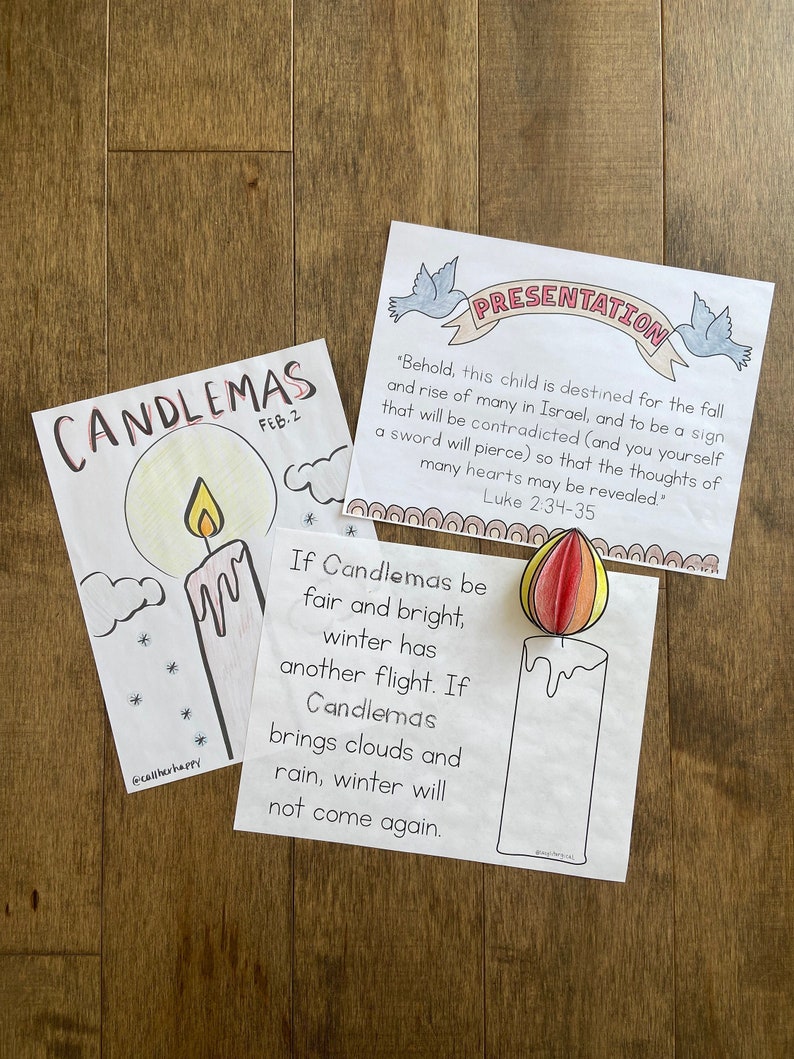 CANDLEMAS
FEB. 2
@callherhappy
PRESENTATION
“Behold, this child is destined for the fall
and rise of many in Israel, and to be a sign
that will be contradicted (and you yourself
a sword will pierce) so that the thoughts of
many hearts may be revealed.”
Luke 2:34-35
If Candlemas be
fair and bright,
winter has
another flight. If
Candlemas
brings clouds and
rain, winter will
not come again.